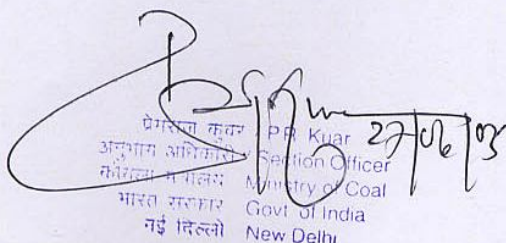 प्रेमराज कुवर / P.R. Kuar
अनुभाग अधिकारी / Section Officer
कोयला मंत्रालय Ministry of Coal
भारत सरकार Govt. of India
नई दिल्ली New Delhi
27/06/03